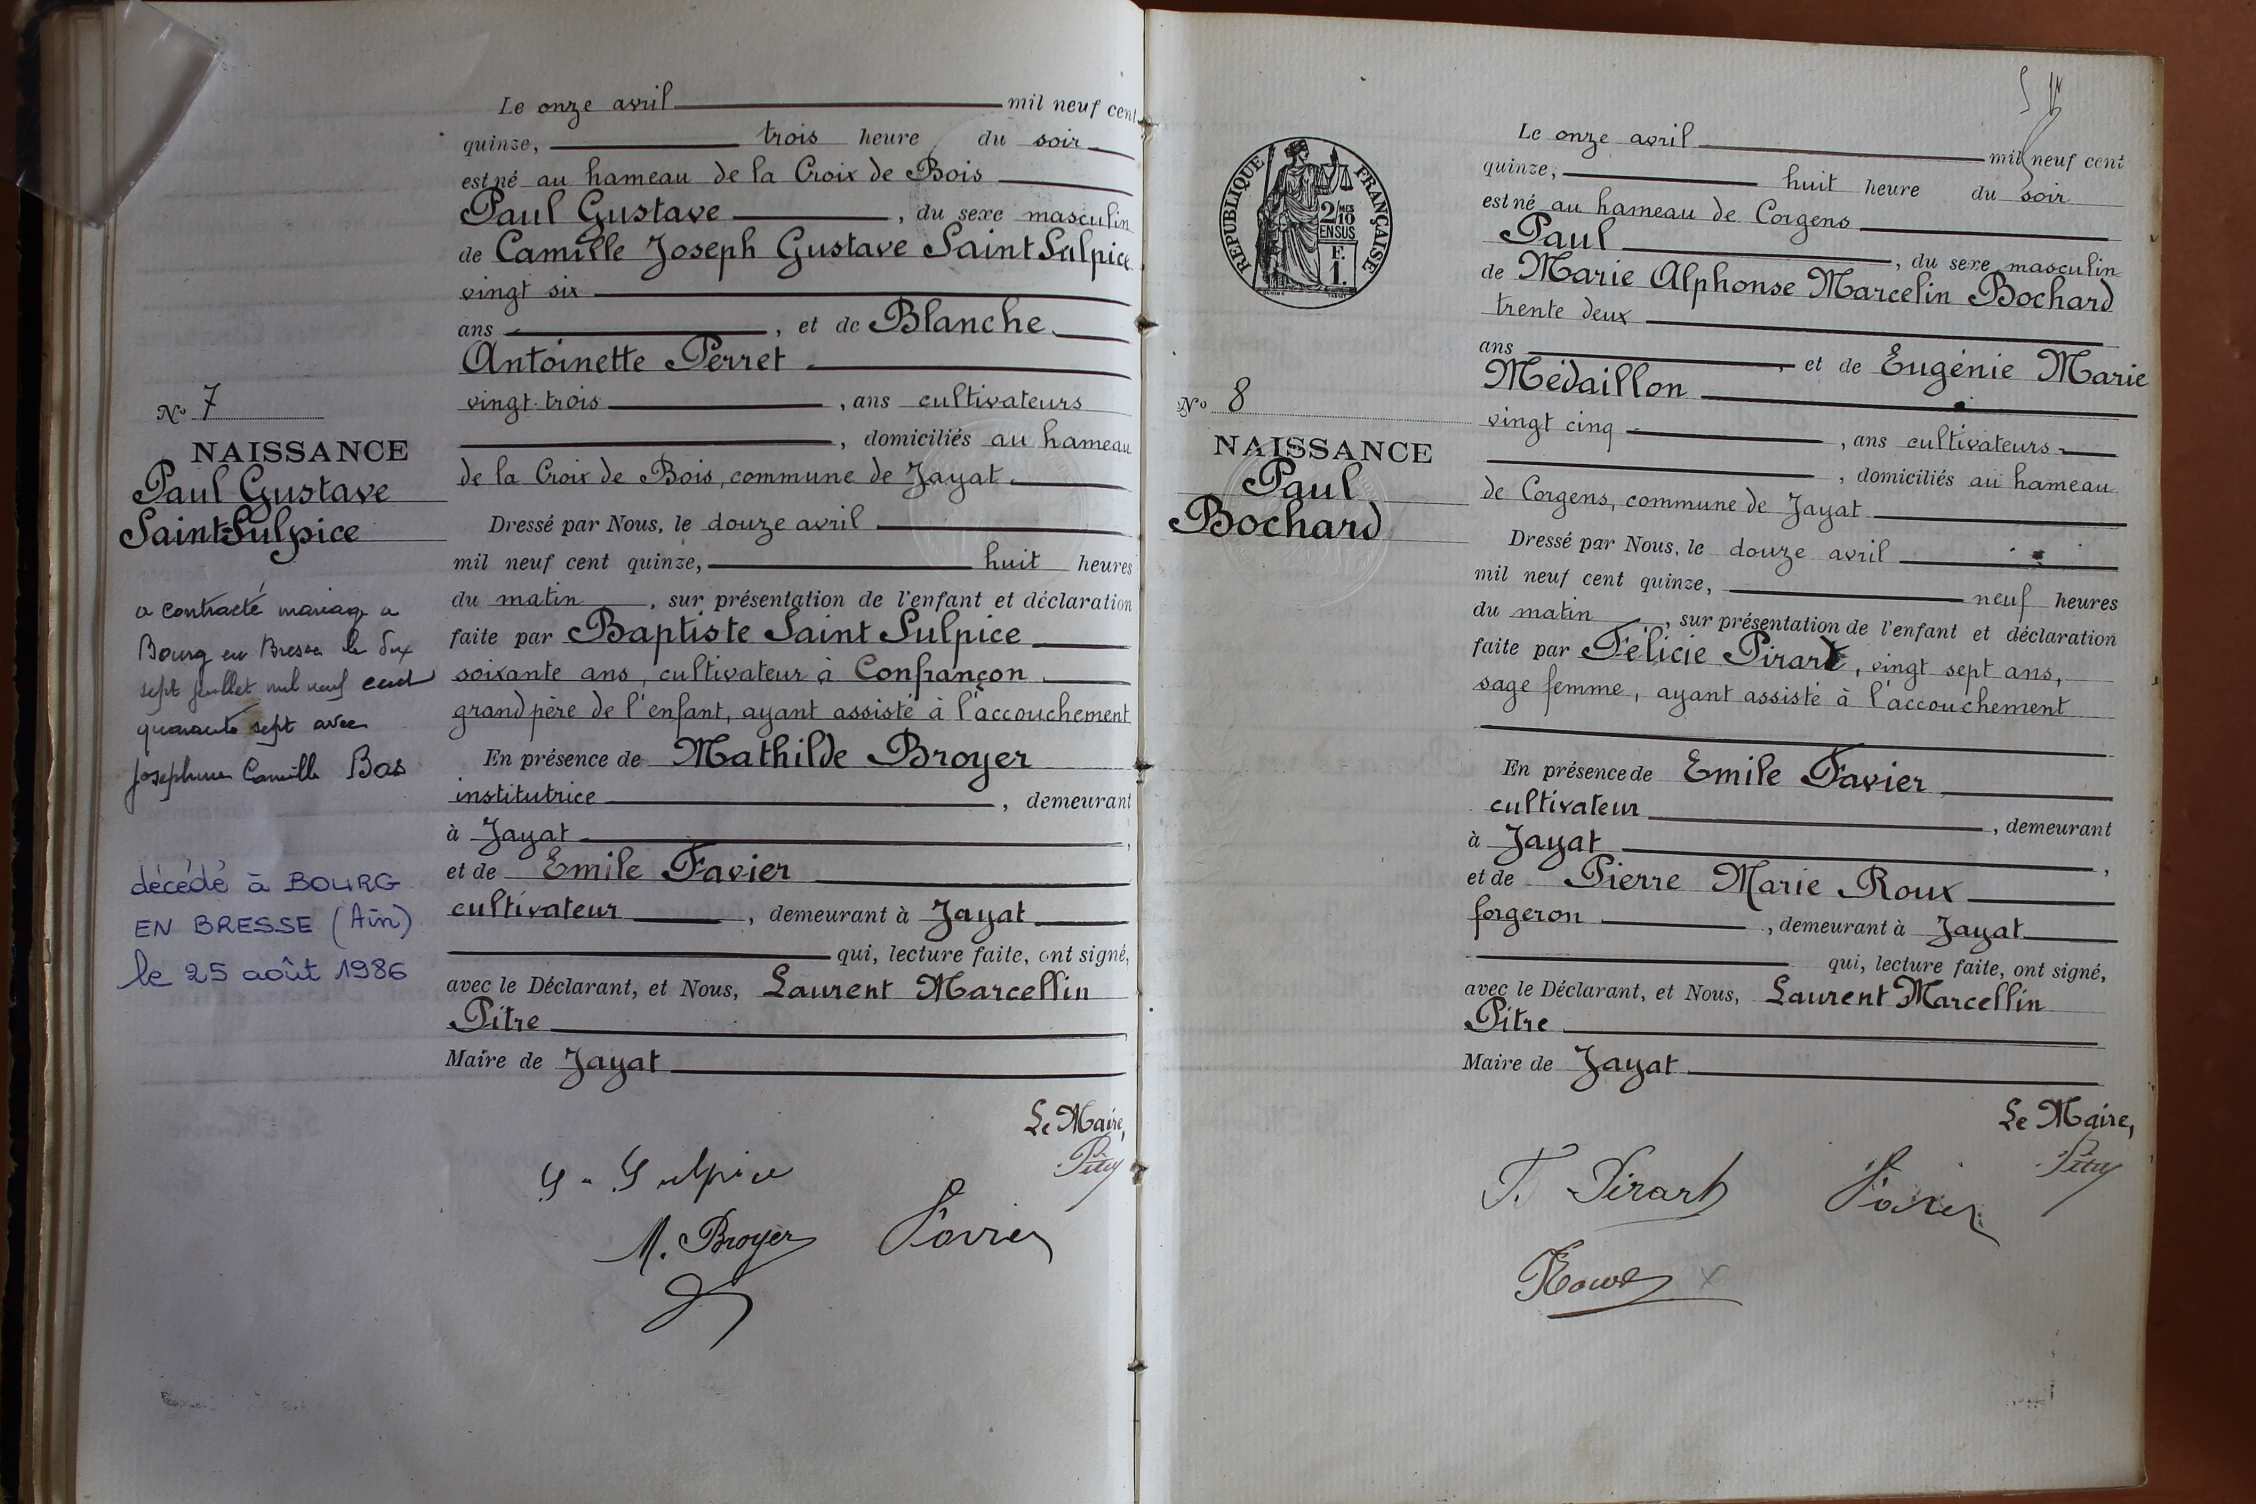 Le onze avril mil neuf cent
quinze, trois heure du soir
est né au hameau de la Croix de Bois
Paul Gustave , du sexe masculin
de Camille Joseph Gustave Saint Sulpice
vingt six
ans , et de Blanche
Antoinette Perret
vingt-trois , ans cultivateurs
, domiciliés au hameau
de la Croix de Bois, commune de Jayat
Dressé par Nous, le douze avril
mil neuf cent quinze, huit heures
du matin , sur présentation de l'enfant et déclaration
faite par Baptiste Saint Sulpice
soixante ans, cultivateur à Confrançon
grand père de l'enfant, ayant assisté à l'accouchement
En présence de Mathilde Broyer
institutrice , demeurant
à Jayat ,
et de Emile Favier
cultivateur , demeurant à Jayat
qui, lecture faite, ont signé,
avec le Déclarant, et Nous, Laurent Marcellin
Pitre
Maire de Jayat
Le Maire,
Pitre
S - Sulpice
M. Broyer Favier
No 7
NAISSANCE
Paul Gustave
Saint-Sulpice
a contracté mariage a
Bourg en Bresse le dix
sept juillet mil neuf cent
quarante sept avec
Josephine Camille Bas
décédé à BOURG
EN BRESSE (Ain)
le 25 août 1986
RÉPUBLIQUE FRANÇAISE
2 MES
10
EN SUS
F.
1.
No 8
NAISSANCE
Paul
Bochard
Le onze avril mil neuf cent
quinze, huit heure du soir
est né au hameau de Corgens
Paul , du sexe masculin
de Marie Alphonse Marcelin Bochard
trente deux
ans , et de Eugénie Marie
Médaillon
vingt cinq , ans cultivateurs
, domiciliés au hameau
de Corgens, commune de Jayat
Dressé par Nous, le douze avril
mil neuf cent quinze, neuf heures
du matin , sur présentation de l'enfant et déclaration
faite par Félicie Pirart, vingt sept ans,
sage femme, ayant assisté à l'accouchement
En présence de Emile Favier
cultivateur , demeurant
à Jayat ,
et de Pierre Marie Roux
forgeron , demeurant à Jayat
qui, lecture faite, ont signé,
avec le Déclarant, et Nous, Laurent Marcellin
Pitre
Maire de Jayat
Le Maire,
Pitre
F. Pirart Favier
Roux